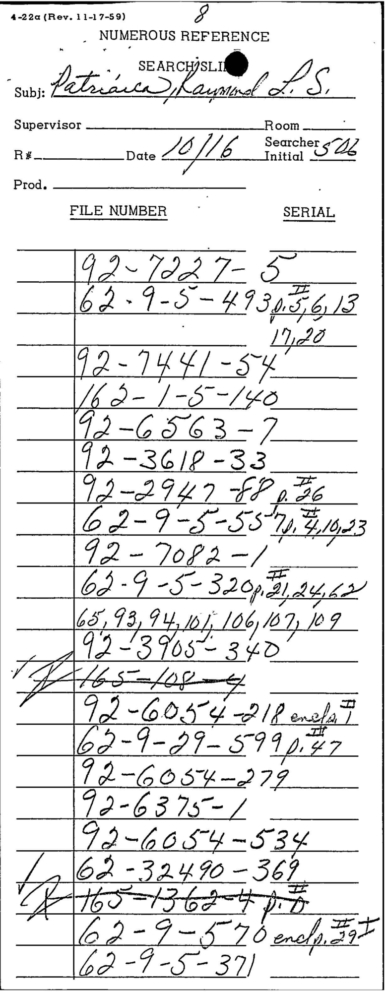 4-22a (Rev. 11-17-59)
8
NUMEROUS REFERENCE
SEARCH SLIP
Subj: Patriarca, Raymond L. S.
Supervisor Room
R# Date 10/16 Searcher Initial 506
Prod.
FILE NUMBER SERIAL
92-7227-5
62-9-5-493 p. II 5, 6, 13
17, 20
92-7441-54
162-1-5-140
92-6563-7
92-3618-33
92-2947-88 p. II 26
62-9-5-557 p. II 4, 10, 23
92-7082-1
62-9-5-320 p. II 21, 24, 62
65, 93, 94, 101, 106, 107, 109
92-3905-340
165-108-4
92-6054-218 encl p. I
62-9-29-599 p. II 47
92-6054-279
92-6375-1
92-6054-534
62-32490-369
165-1362-4 p.
62-9-570 encl p. II 29 I
62-9-5-371